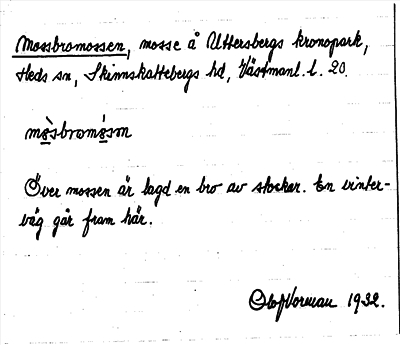 Mossbromossen, mosse å Uttersbergs kronopark,
Heds sn, Skinnskattebergs hd, Västmanl. l. 20.
mò̲sbromó̲sən
Över mossen är lagd en bro av stockar. En vinter-
väg går fram här.
Olof Vorman 1932.